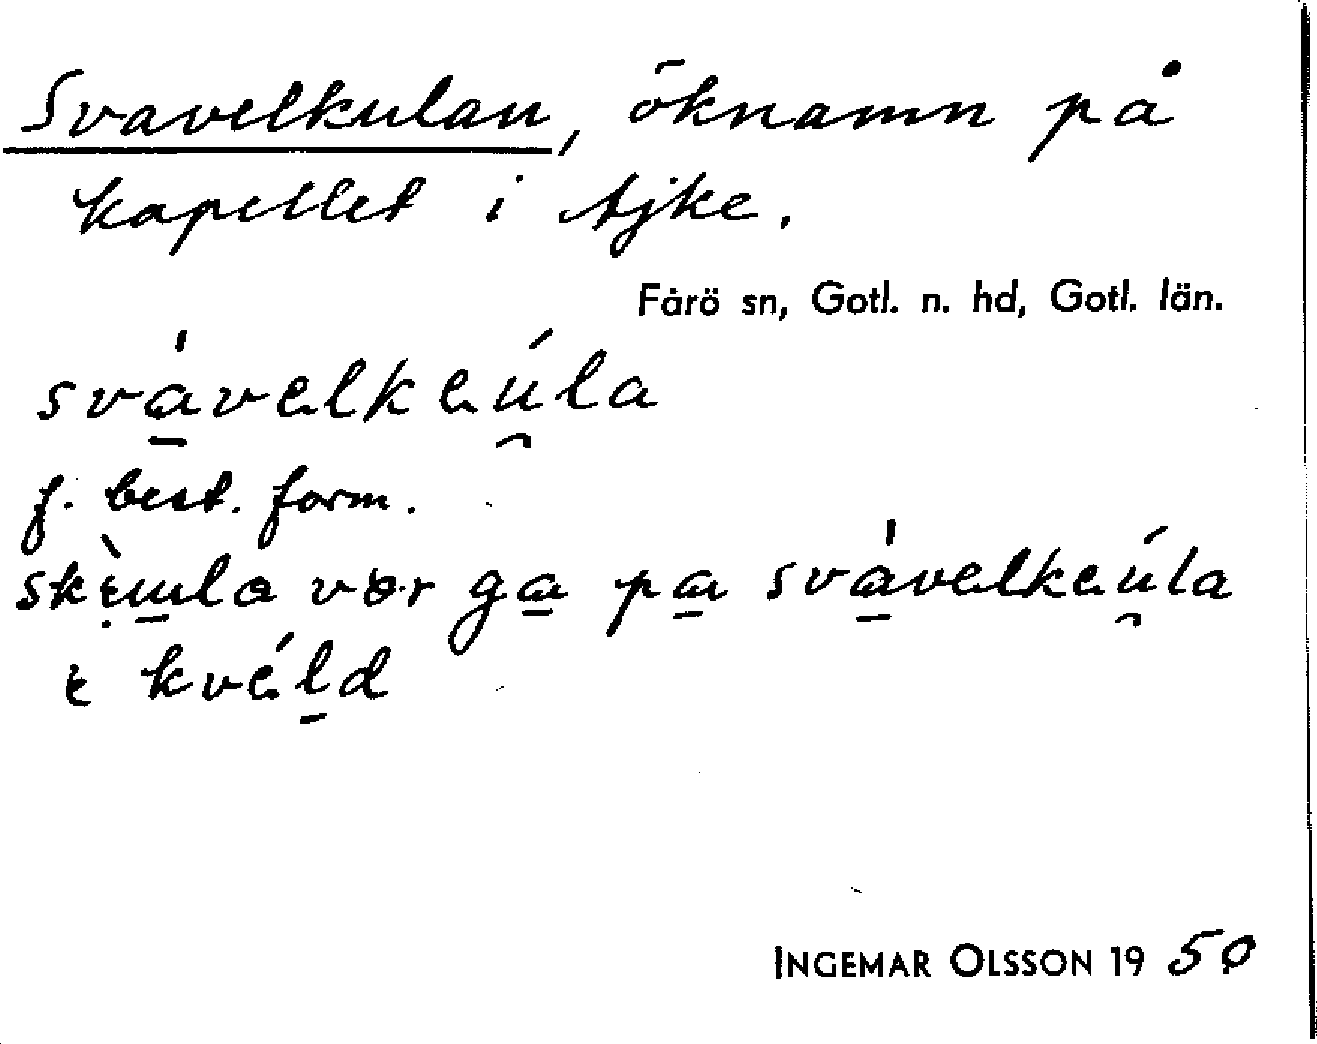 Svavelkulan, öknamn på
kapellet i Ajke.
Fårö sn, Gotl. n. hd, Gotl. län.
svávelkeúla
f. best. form.
ga pa svávelkeúla
kvéld
INGEMAR OLSSON 19 50